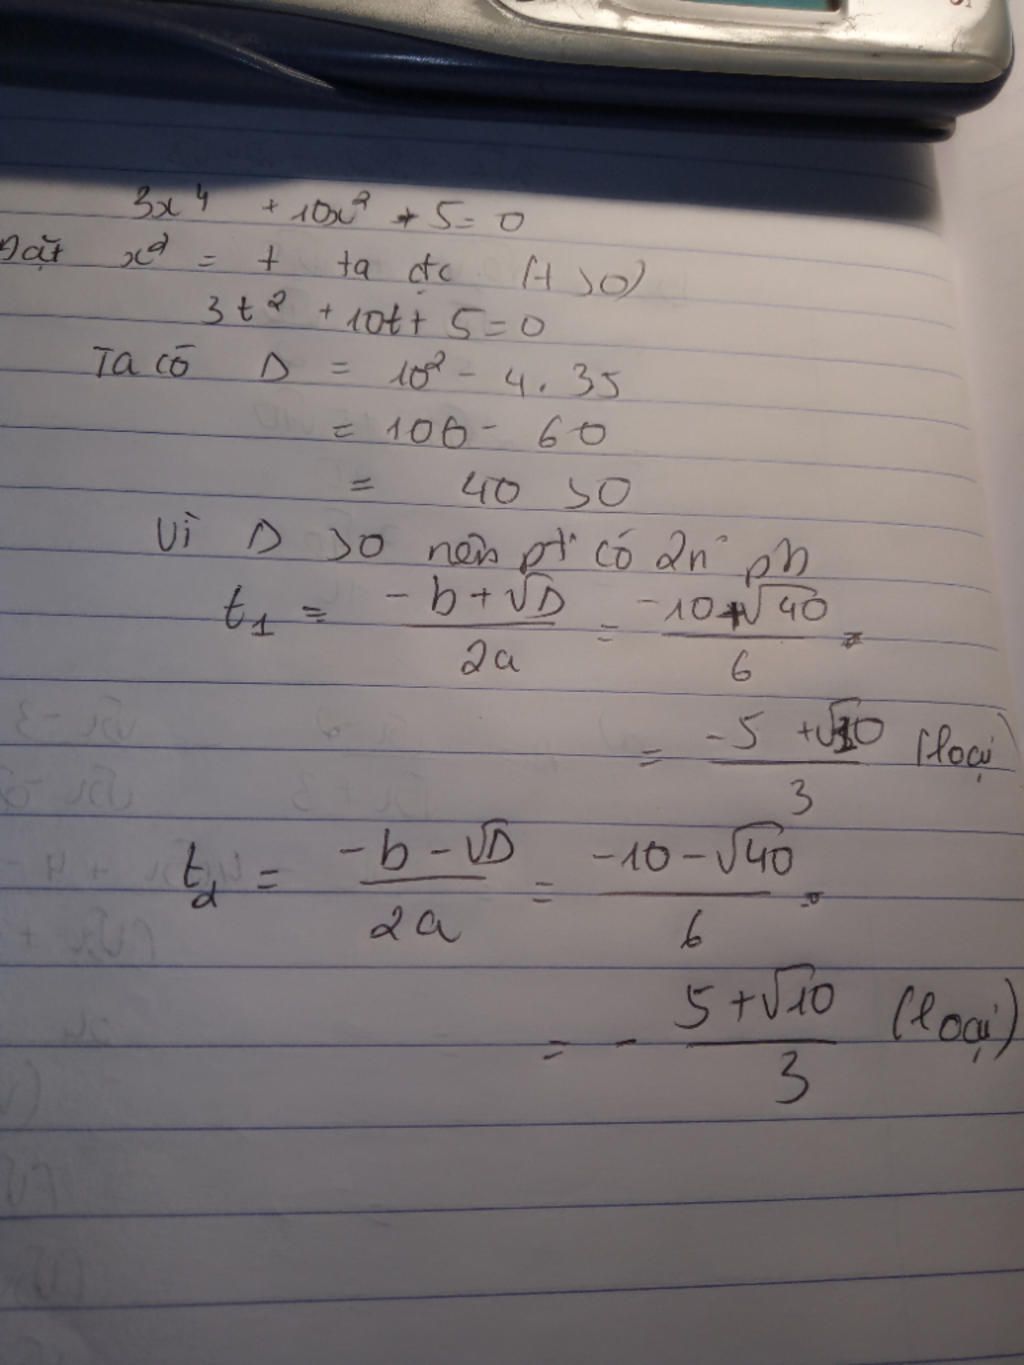 3x⁴ + 10x² + 5 = 0
Đặt x² = t ta đc (t > 0)
3t² + 10t + 5 = 0
Ta có Δ = 10² - 4.35
= 100 - 60
= 40 > 0
Vì Δ > 0 nên pt có 2n° pb
t₁ = (-b + √Δ)/2a = (-10 + √40)/6 =
= (-5 + √10)/3 (loại)
t₂ = (-b - √Δ)/2a = (-10 - √40)/6 =
= - (5 + √10)/3 (loại)